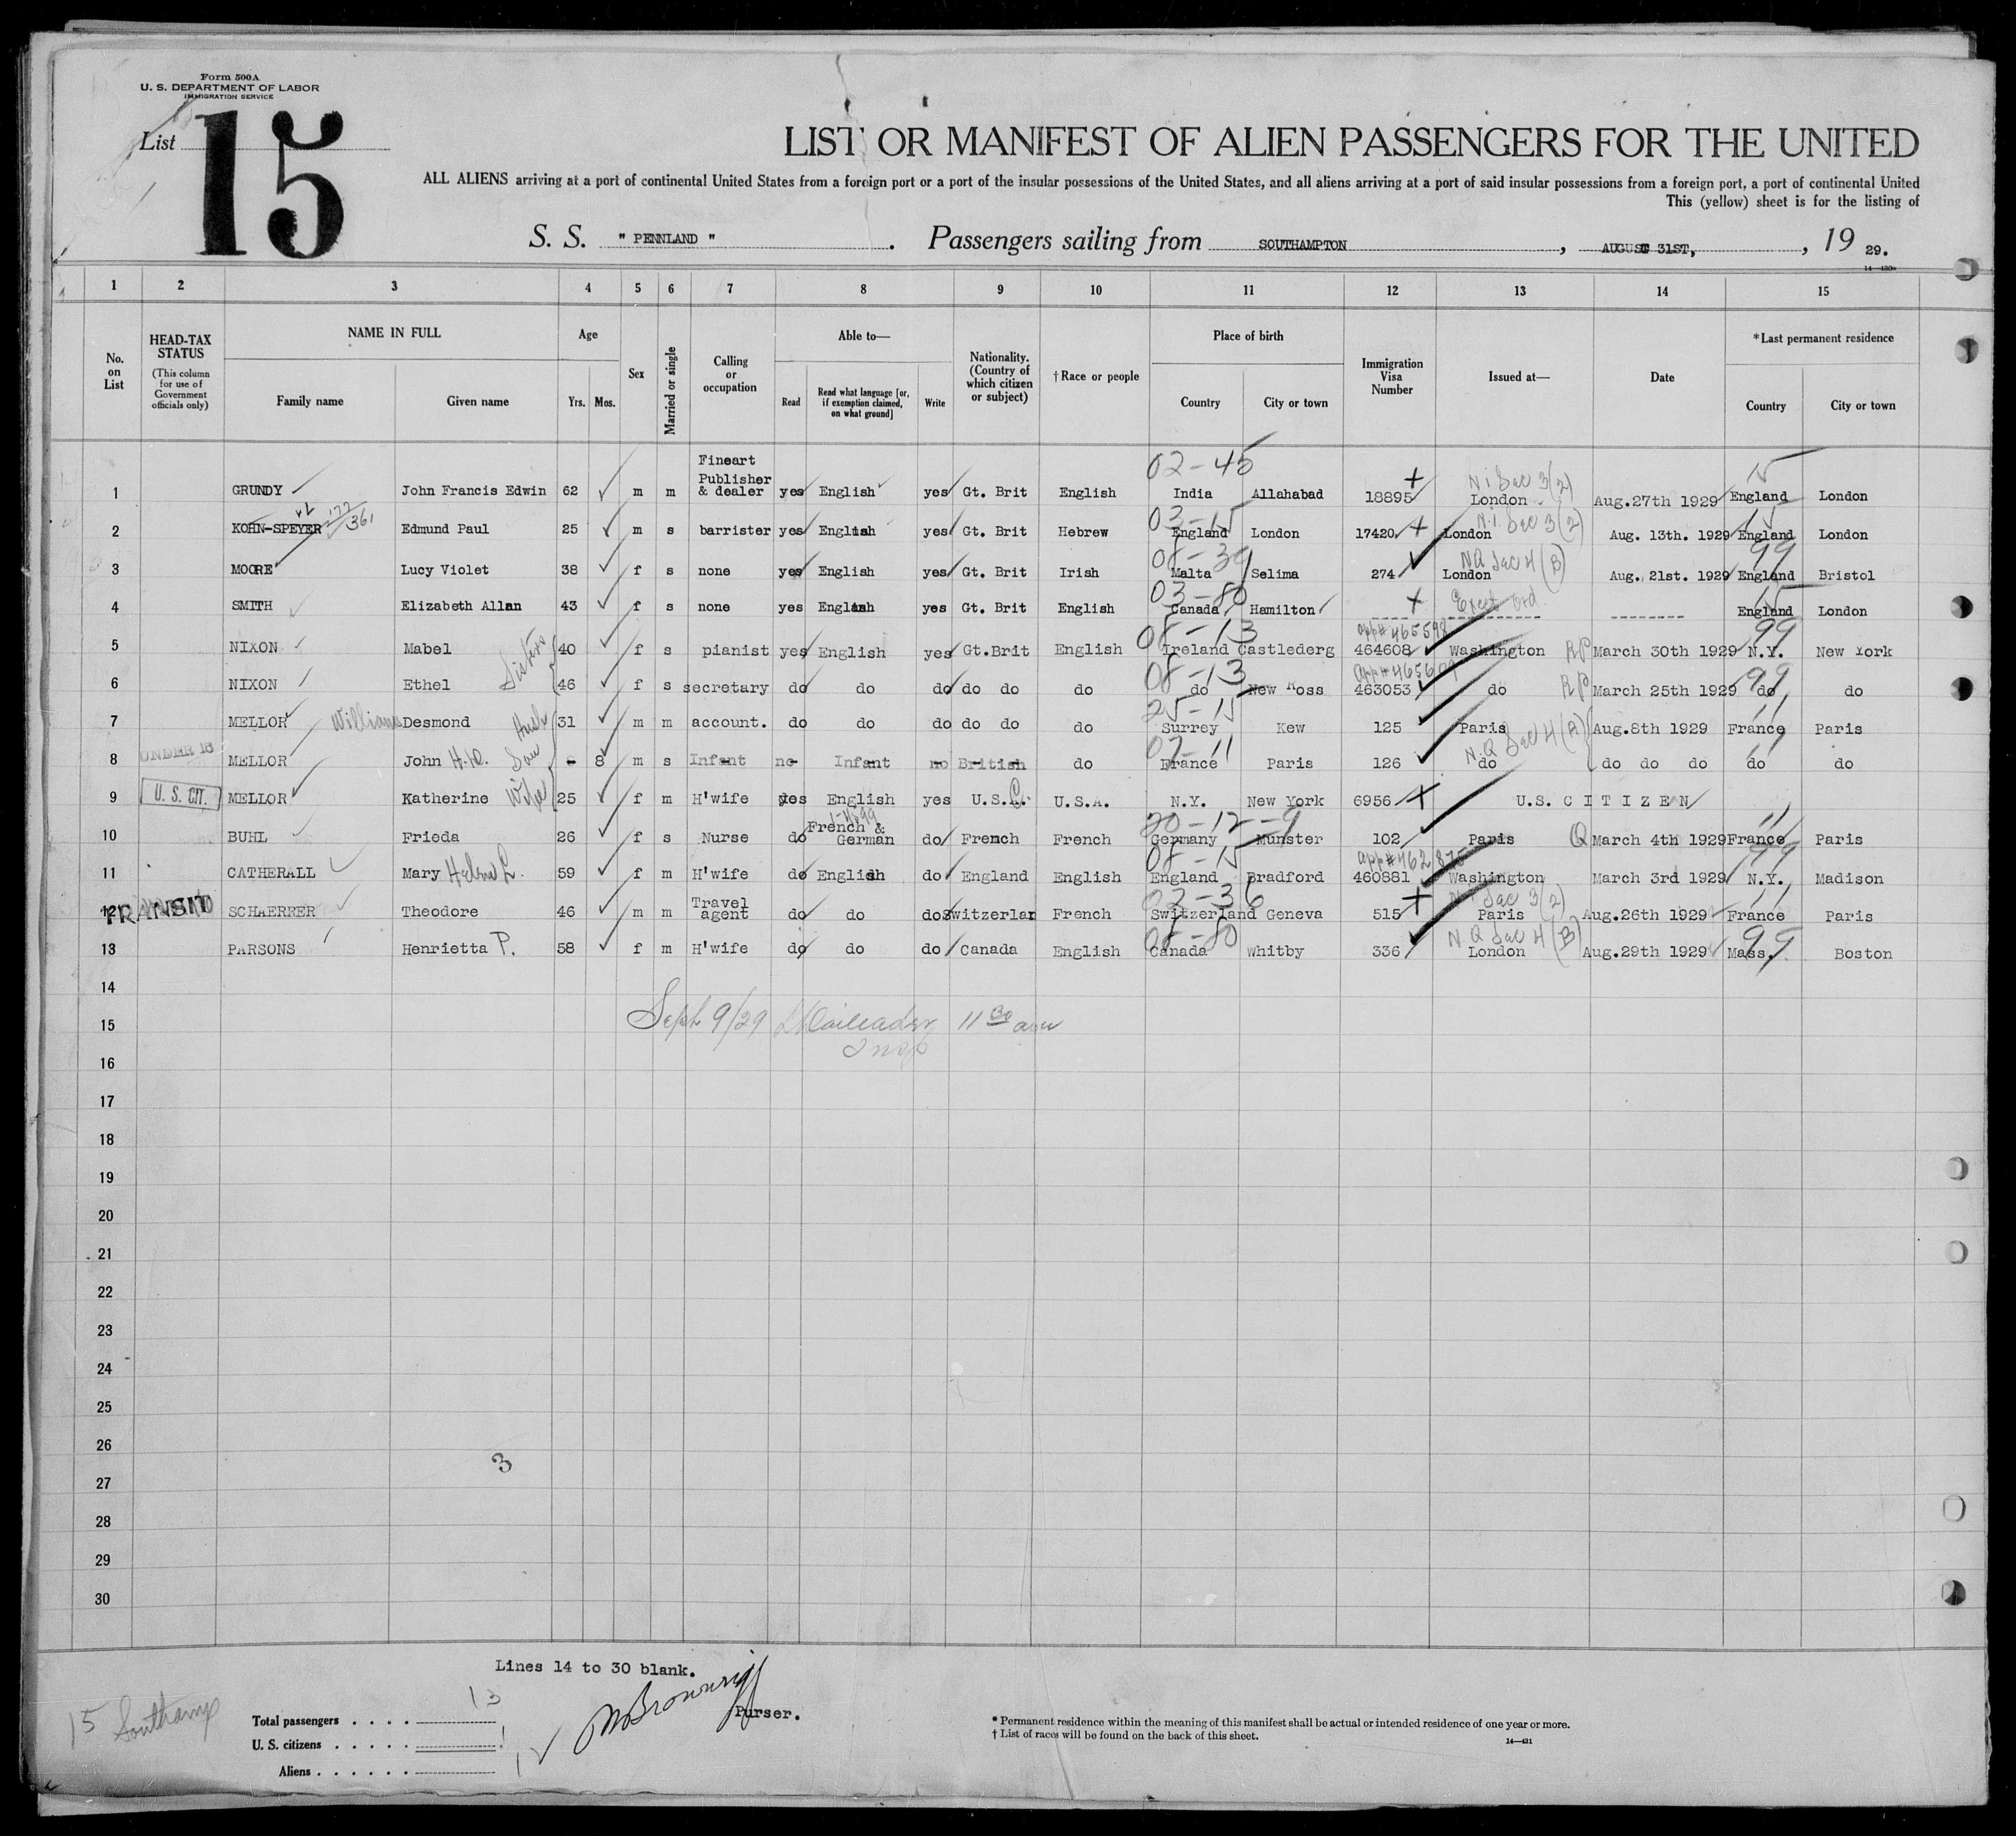 Form 500A
U. S. DEPARTMENT OF LABOR
IMMIGRATION SERVICE
List 15
LIST OR MANIFEST OF ALIEN PASSENGERS FOR THE UNITED
ALL ALIENS arriving at a port of continental United States from a foreign port or a port of the insular possessions of the United States, and all aliens arriving at a port of said insular possessions from a foreign port, a port of continental United
This (yellow) sheet is for the listing of
S. S. " PENNLAND " . Passengers sailing from SOUTHAMPTON , AUGUST 31ST, , 19 29.
14—430a
1 2 3 4 5 6 7 8 9 10 11 12 13 14 15
No. on List
HEAD-TAX STATUS
(This column for use of Government officials only)
NAME IN FULL
Family name Given name
Age
Yrs. Mos.
Sex
Married or single
Calling or occupation
Able to—
Read Read what language [or, if exemption claimed, on what ground] Write
Nationality. (Country of which citizen or subject)
† Race or people
Place of birth
Country City or town
Immigration Visa Number
Issued at—
Date
*Last permanent residence
Country City or town
02-45 15
1 GRUNDY John Francis Edwin 62 m m Fineart Publisher & dealer yes English yes Gt. Brit English India Allahabad 18895 N i Sec 3(2) London Aug.27th 1929 England London
177/361 03-15 15
2 KOHN-SPEYER Edmund Paul 25 m s barrister yes English yes Gt. Brit Hebrew England London 17420 N.I. Sec 3(2) London Aug. 13th. 1929 England London
08-39 99
3 MOORE Lucy Violet 38 f s none yes English yes Gt. Brit Irish Malta Selima 274 NQ Sec 4(B) London Aug. 21st. 1929 England Bristol
03-80 15
4 SMITH Elizabeth Allan 43 f s none yes English yes Gt. Brit English Canada Hamilton Exect Ord. England London
08-13 app# 465598 99
5 NIXON Mabel Sisters 40 f s pianist yes English yes Gt.Brit English Ireland Castlederg 464608 Washington RP March 30th 1929 N.Y. New York
08-13 99
6 NIXON Ethel 46 f s secretary do do do do do do do New Ross 463053 do RP March 25th 1929 do do
25-15 11
7 MELLOR William Desmond Husb 31 m m account. do do do do do do Surrey Kew 125 Paris Aug.8th 1929 France Paris
UNDER 16 07-11 N.Q Sec 4(A) 11
8 MELLOR John H.D. Son - 8 m s Infant no Infant no British do France Paris 126 do do do do do do
U. S. CIT.
9 MELLOR Katherine Wife 25 f m H'wife yes English yes U.S.C. U.S.A. N.Y. New York 6956 U.S. CITIZEN
20-12-9 11
10 BUHL Frieda 26 f s Nurse do French & German do French French Germany Munster 102 Paris Q March 4th 1929 France Paris
08-15 99
11 CATHERALL Mary 59 f m H'wife do English do England English England Bradford 460881 Washington March 3rd 1929 N.Y. Madison
TRANSIT 02-36 11
12 SCHAERRER Theodore 46 m m Travel agent do do do Switzerlan French Switzerland Geneva 515 Sec 3(2) Paris Aug.26th 1929 France Paris
08-80 99
13 PARSONS Henrietta P. 58 f m H'wife do do do Canada English Canada Whitby 336 N.Q Sec 4(B) London Aug.29th 1929 Mass. Boston
14
15 Sept 9/29 11 30 am
Insp
16
17
18
19
20
21
22
23
24
25
26
3
27
28
29
30
Lines 14 to 30 blank.
15 Southamp
Total passengers . . . . 13
U. S. citizens . . . . . 1
Aliens . . . . . .
Purser.
* Permanent residence within the meaning of this manifest shall be actual or intended residence of one year or more.
† List of races will be found on the back of this sheet.
14—431